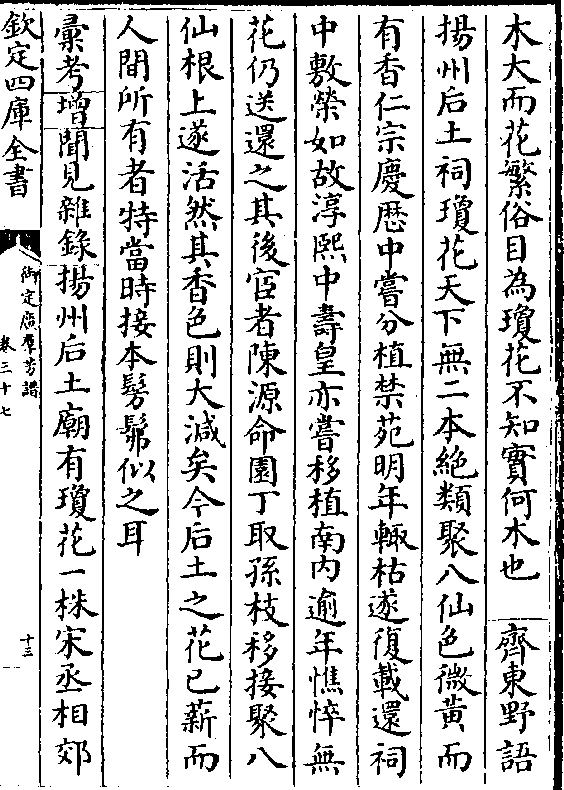 木大而花繁俗目為瓊花不知實何木也 齊東野語
揚州后土祠瓊花天下無二本絶類聚八仙色微黄而
有香仁宗慶歴中嘗分植禁苑明年輒枯遂復載還祠
中敷榮如故淳熙中壽皇亦嘗移植南内逾年憔悴無
花仍送還之其後宦者陳源命園丁取孫枝移接聚八
仙根上遂活然其香色則大減矣今后土之花已薪而
人間所有者特當時接本髣髴似之耳
彙考增聞見雜錄揚州后土廟有瓊花一株宋丞相郊
欽定四庫全書
御定廣羣芳譜
卷三十七
十三